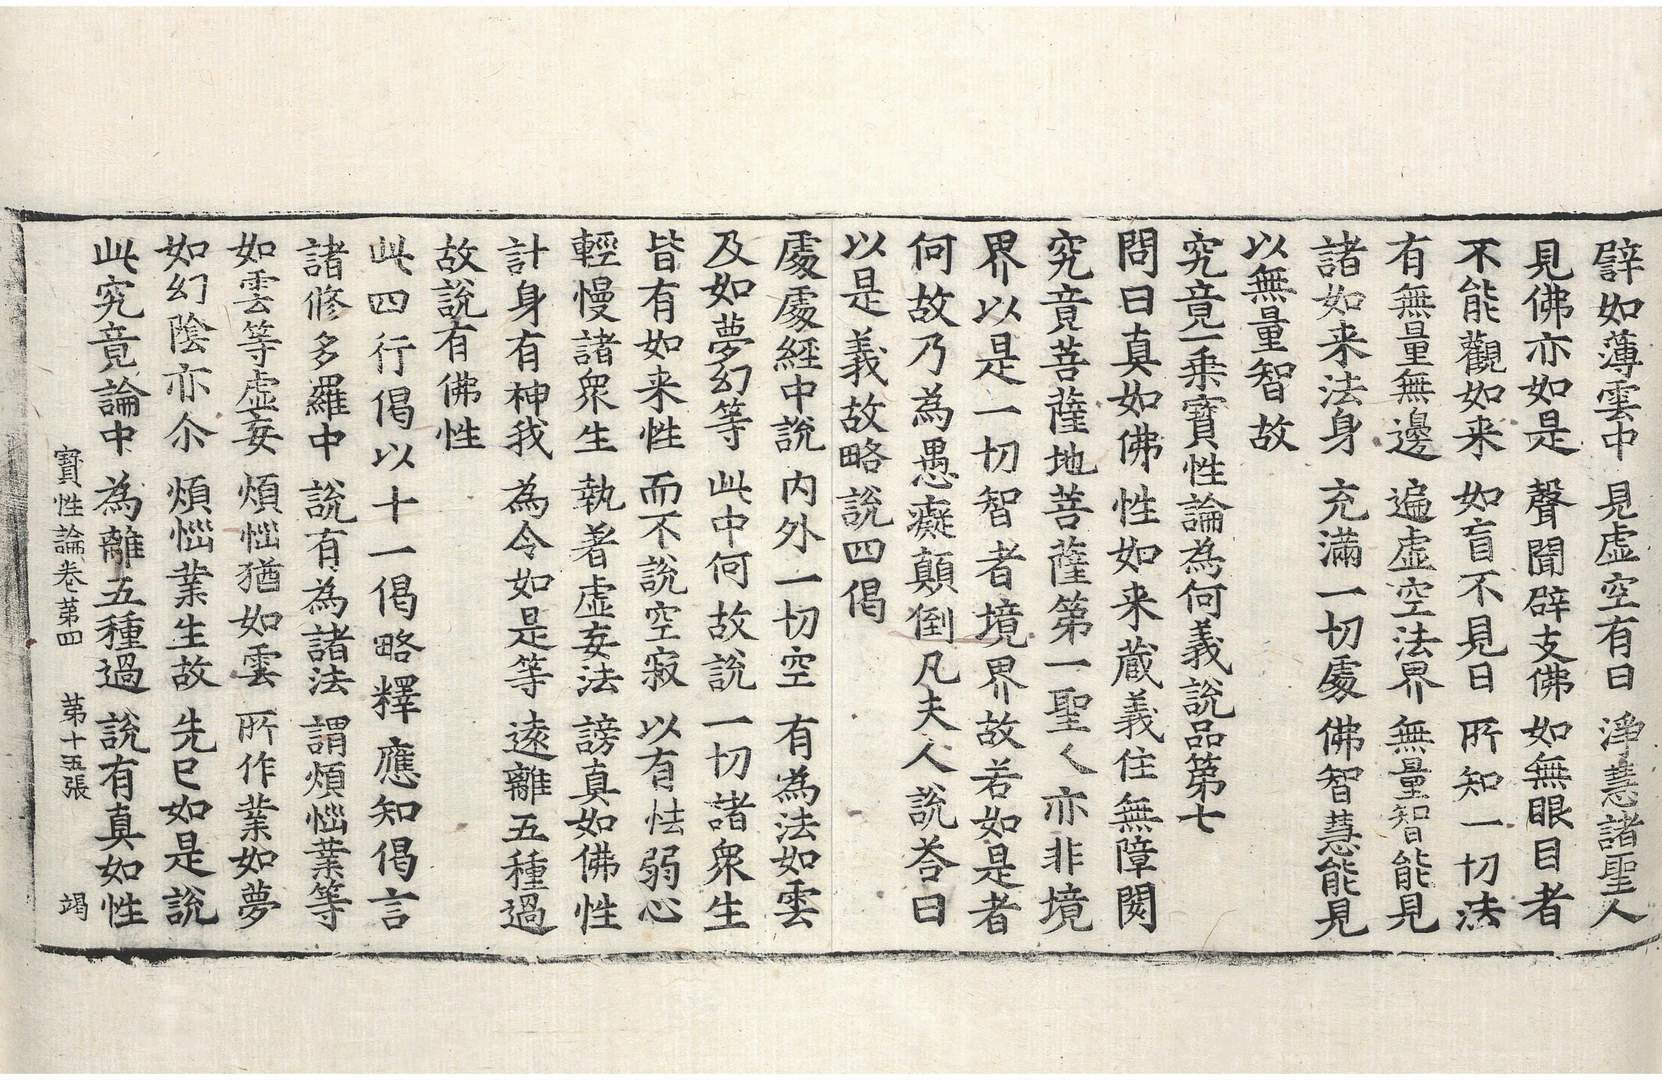 譬如薄雲中 見虛空有日 淨慧諸聖人
見佛亦如是 聲聞辟支佛 如無眼目者
不能觀如来 如盲不見日 所知一切法
有無量無邊 遍虛空法界 無量智能見
諸如来法身 充滿一切處 佛智慧能見
以無量智故
究竟一乗寶性論為何義說品第七
問曰真如佛性如来蔵義住無障閡
究竟菩薩地菩薩第一聖人亦非境
界以是一切智者境界故若如是者
何故乃為愚癡顛倒凡夫人說荅曰
以是義故略說四偈
處處經中說 内外一切空 有為法如雲
及如夢幻等 此中何故說 一切諸衆生
皆有如来性 而不說空寂 以有怯弱心
輕慢諸衆生 執著虛妄法 謗真如佛性
計身有神我 為令如是等 遠離五種過
故說有佛性
此四行偈以十一偈略釋應知偈言
諸修多羅中 說有為諸法 謂煩惱業等
如雲等虛妄 煩惱猶如雲 所作業如夢
如幻陰亦尒 煩惱業生故 先已如是說
此究竟論中 為離五種過 說有真如性
寶性論卷第四 第十五張 竭